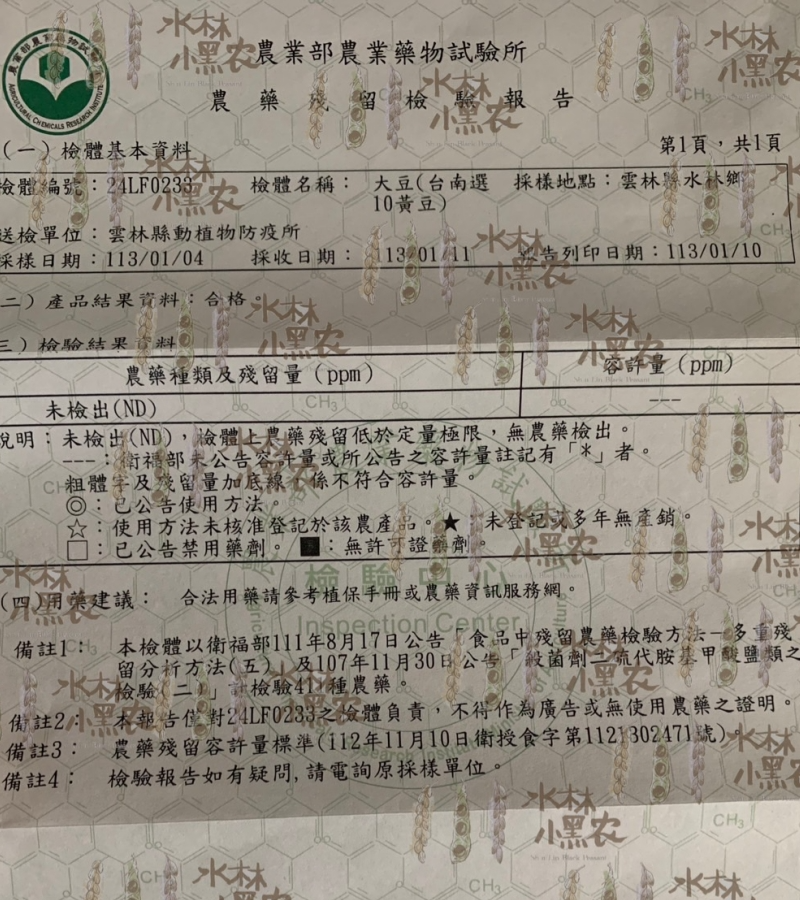 農業部農業藥物試驗所
農藥殘留檢驗報告
AGRICULTURAL CHEMICALS RESEARCH INSTITUTE
(一)檢體基本資料
第1頁,共1頁
檢體編號:24LF0233 檢體名稱:大豆(台南選10黃豆) 採樣地點:雲林縣水林鄉
送檢單位:雲林縣動植物防疫所
採樣日期:113/01/04 採收日期:113/01/11 報告列印日期:113/01/10
二)產品結果資料:合格。
三)檢驗結果資料
農藥種類及殘留量(ppm) 容許量(ppm)
未檢出(ND) ---
說明:未檢出(ND),檢體上農藥殘留低於定量極限,無農藥檢出。
---:衛福部未公告容許量或所公告之容許量註記有「*」者。
粗體字及殘留量加底線者係不符合容許量。
◎:已公告使用方法。
☆:使用方法未核准登記於該農產品。★:未登記或多年無產銷。
□:已公告禁用藥劑。■:無許可證藥劑。
檢驗中心
Inspection Center
(四)用藥建議: 合法用藥請參考植保手冊或農藥資訊服務網。
備註1: 本檢體以衛福部111年8月17日公告「食品中殘留農藥檢驗方法-多重殘
留分析方法(五)」及107年11月30日公告「殺菌劑二硫代胺基甲酸鹽類之
檢驗(二)」計檢驗411種農藥。
備註2: 本報告僅對24LF0233之檢體負責,不得作為廣告或無使用農藥之證明。
備註3: 農藥殘留容許量標準(112年11月10日衛授食字第1121302471號)。
備註4: 檢驗報告如有疑問,請電詢原採樣單位。
水林
小黑农
CH₃